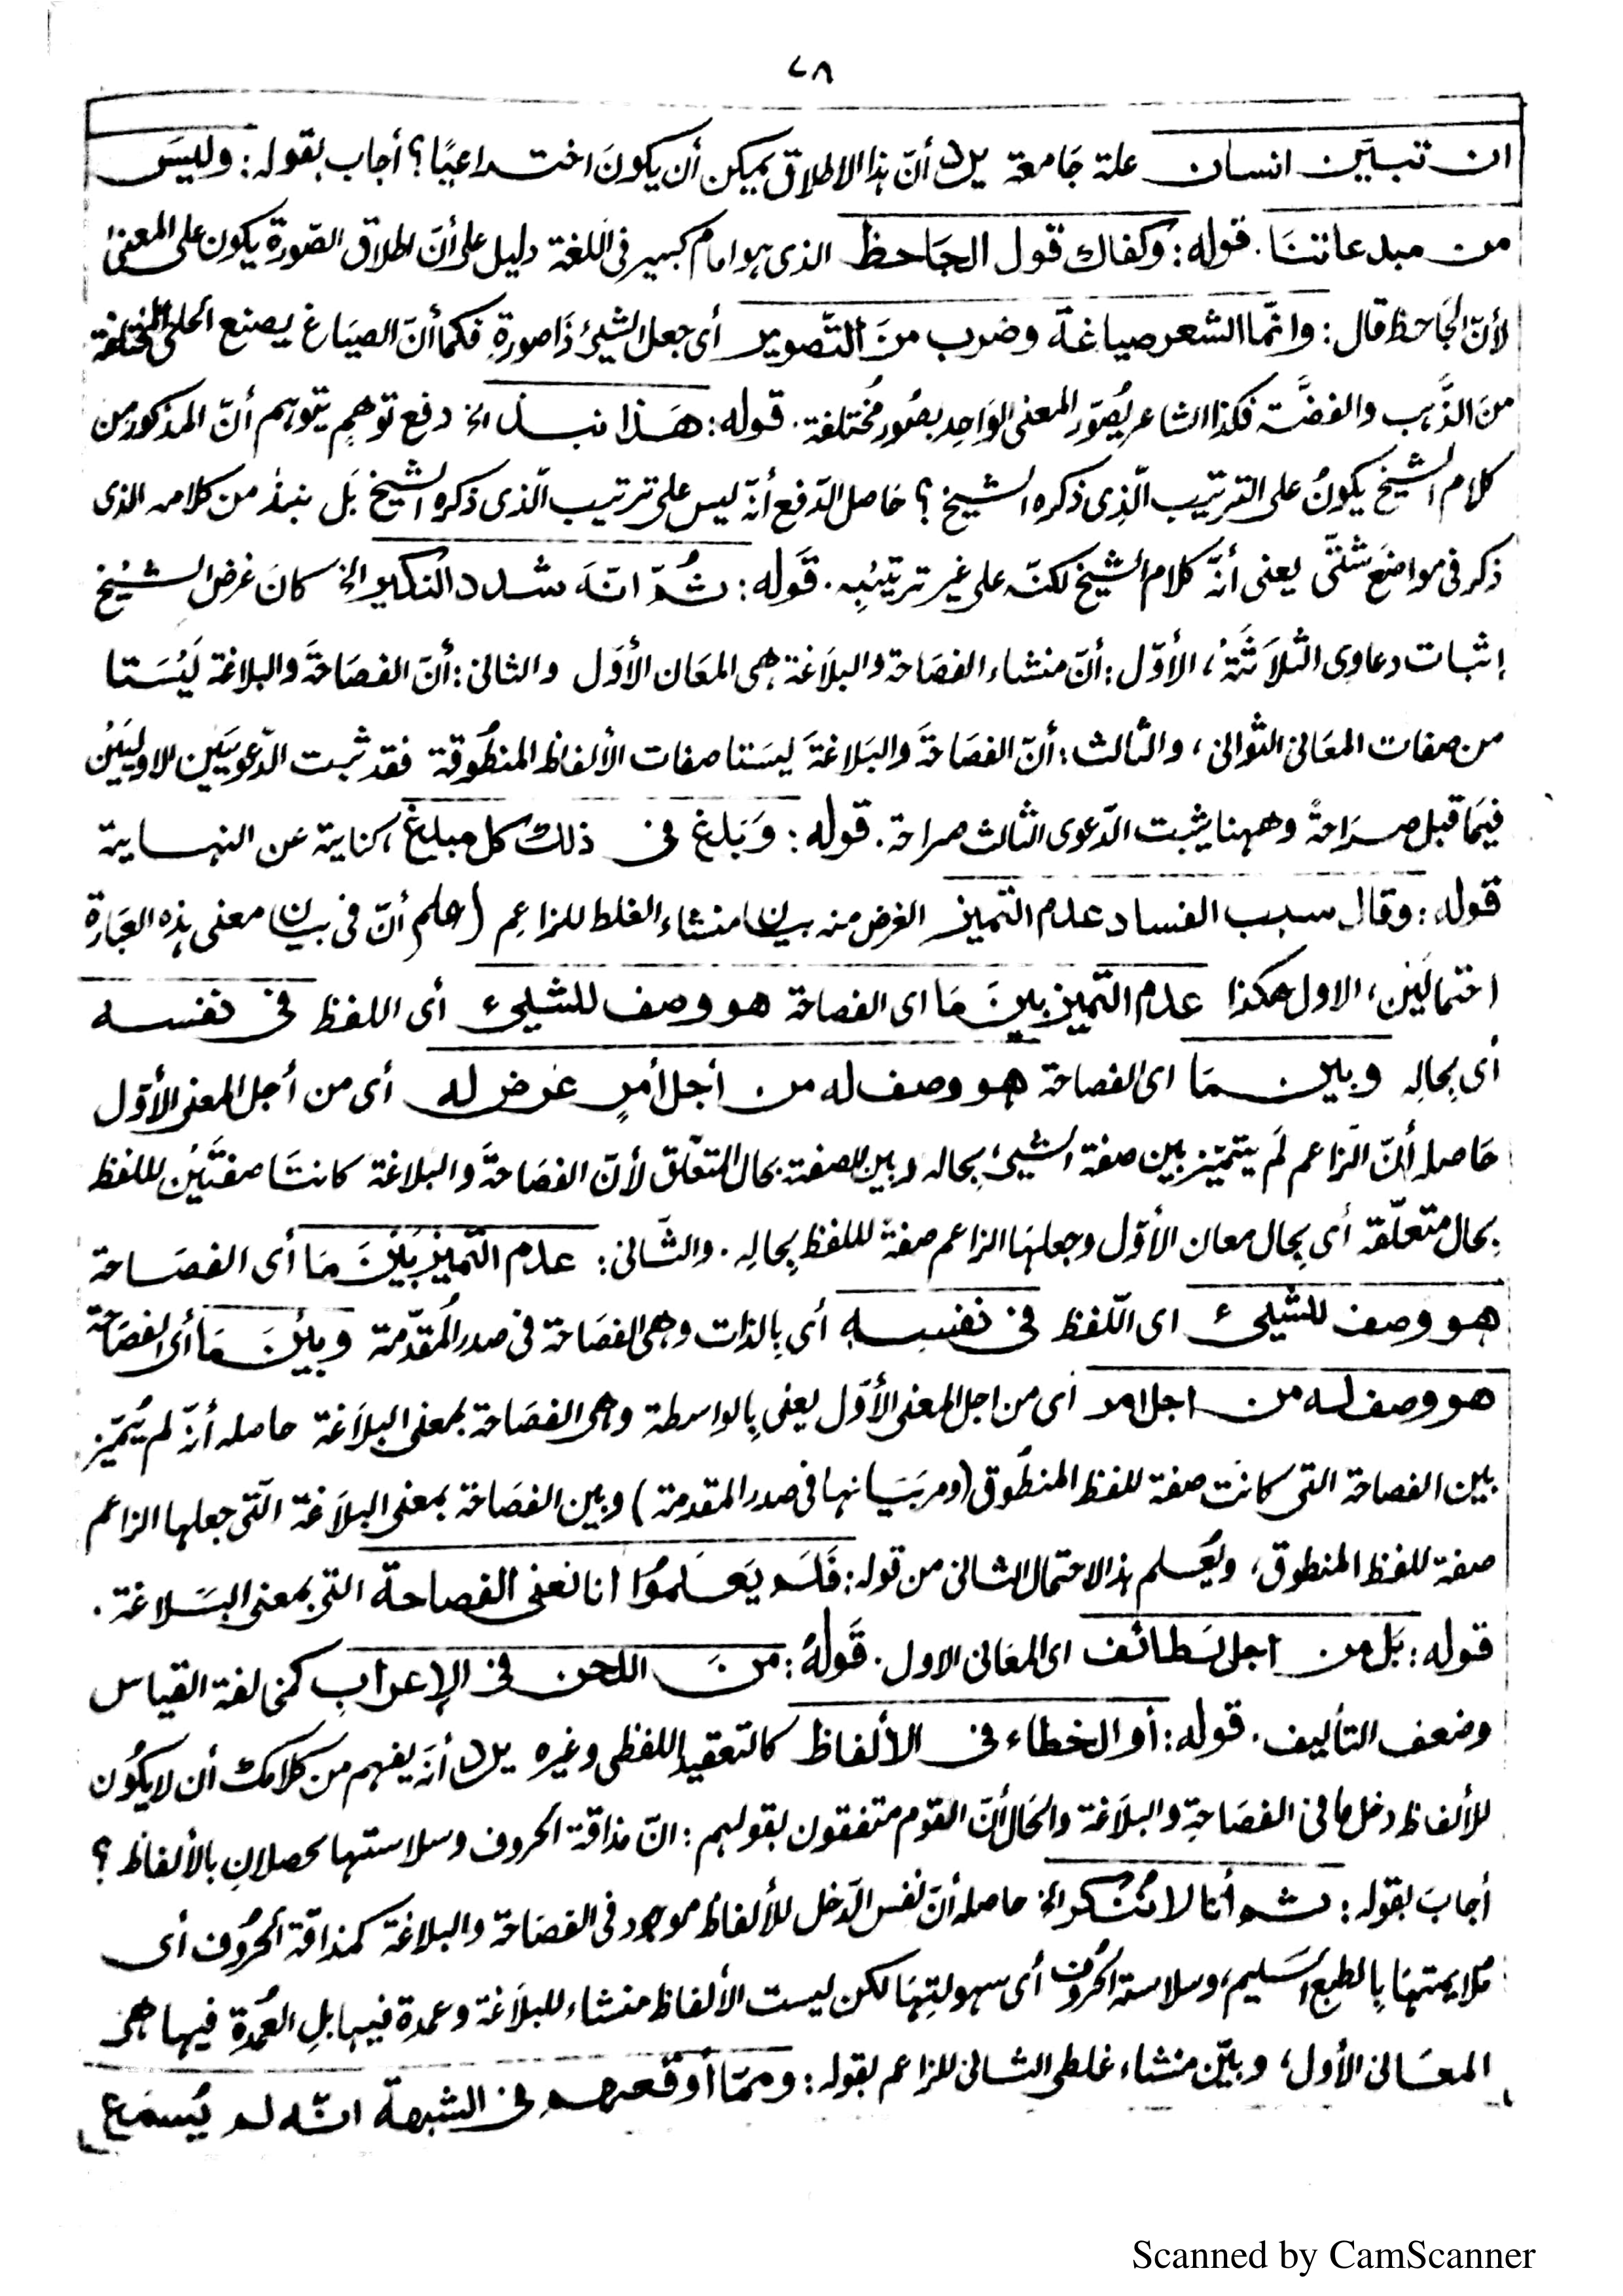 ٤٨
ان تبيّن انسان علة جَامعة يرد أنّ هذا الاطلاق يمكن أن يكونَ اختراعيًا؟ أجاب بقوله: وليسَ
من مبدعاتنَا. قوله: وكفاك قول الجَاحظ الذى هو امام كبير فى اللغة دليل على أنّ اطلاق الصّورة يكون على المعنىٰ
لأنّ الجَاحظ قال: وانّما الشعر صياغة وضرب منَ التّصوير أى جعل الشيئ ذَا صورةٍ فكما أنّ الصيَاغ يصنع الحلى المختلفة
منَ الذَّهب والفضَّة فكذا الشاعر يُصوّر المعنى الوَاحِد بصُور مُختلفة. قوله: هَذا نبذ الخ دفع توهمٍ يتوهم أنّ المذكور من
كلام الشيخ يكونُ على الترتيب الّذِى ذكره الشيخ؟ حَاصل الدّفع أنّه ليس على ترتيب الّذى ذكره الشيخ بَل نبذٌ من كلامه الذى
ذكر فى مواضع شتّى يعنى أنّه كلام الشيخ لكنّه على غير ترتيبِه. قَوله: ثُمّ انّهَ شدد النكير الخ كانَ غرض الشيْخ
إثبات دعاوى الثلَاثَة، الأوّل: أنّ منشاء الفصَاحة والبلَاغة هى المعَان الأوَل والثانى: أنّ الفصَاحَة والبلاغة لَيْسَتا
من صفات المعَانى الثوانى، والثالث: أنّ الفصَاحَة والبَلاغةَ ليسَتا صفات الألفاظ المنطُوقة فقد ثبت الدّعويَين الاوليَيْن
فيَما قبل صرَاحةً وههنا يثبت الدّعوى الثالث صراحة. قوله: وَبَلغ فى ذلك كل مبلغ، كناية عن النهاية
قوله: وقال سبب الفساد عدم التميز الغرض منه بيان منشاء الغلط للزاعِم (اعلم) أنّ فى بيان معنى هذه العبَارة
احتمالَين، الاول هكذا عدم التميز بينَ مَا اى الفصاحة هو وصف للشيئ أى اللفظ فى نفسه
أى بِحالِه وبين مَا اى الفصاحة هو وصف له من أجل أمرٍ عَرض له أى من أجل المعنى الأوّل
حَاصله أنّ الزاعم لَم يتميّز بين صفة الشيئ بِحاله وبين الصفة بحال المتعلّق لأنّ الفصَاحَة والبلاغة كانتَا صفتَيْن للفظ
بِحال متعلّقه أى بِحال معان الأوّل وجعلهَا الزاعم صفة للفظ بِحالِه. والثّانى: عدم التّميز بَيْنَ مَا أى الفصَاحة
هو وصف للشيئ اى اللّفظ فى نفسه أى بِالذات وهى الفصَاحة فى صدر المُقدّمة وبيْنَ مَا أى الفصَاحَة
هو وصف له من اجل امر أى من اجل المعنى الأوّل يعنى بِالواسطة وهى الفصَاحة بمعنى البلَاغة حاصله أنّه لم يُميّز
بين الفصاحة التى كانَت صفة للفظ المنطُوق (ومر بَيَانها فى صدر المقدمة) وبين الفصَاحة بمعنى البلَاغة الّتى جعلها الزاعم
صفة للفظ المنطوق، ويُعلم هذا الاحتمال الثانى من قوله: فَلَم يَعلمُوا انا نعنى الفصاحة التى بمعنى البَلاغة.
قوله: بَل من اجل لَطائف اى المعَانى الاول. قَولهُ: منَ اللحن فى الإعراب كمخالفة القياس
وضعف التأليف. قوله: أو الخطاء فى الألفاظ كالتعقيد اللفظى وغيره يرد أنّه يفهم من كلامك أن لا يكُون
للألفاظ دخل ما فى الفصَاحةِ والبلَاغة والحَال أنّ القوم متفقون بقولهم: انّ مذاقة الحروف وسلاستها تحصلانِ بالألفاظ؟
أجابَ بقوله: ثم أنا لا نُنكر الخ حاصله أنّ نفس الدّخل للألفاظ موجود فى الفصَاحة والبلاغة كمذاقة الحُرُوف أى
مُلايمتهَا بِالطبع السَليم، وسلاسة الحُرُوف أى سهولتِهَا لكن ليست الألفاظ منشاء للبلَاغة وعمدة فيها بلِ العُمدة فيها هى
المعَانى الأول، وبيّن منشاء غلطى الثانى للزاعم بقوله: وممّا أوقعهم فى الشبهة انّه لم يُسمَع
Scanned by CamScanner